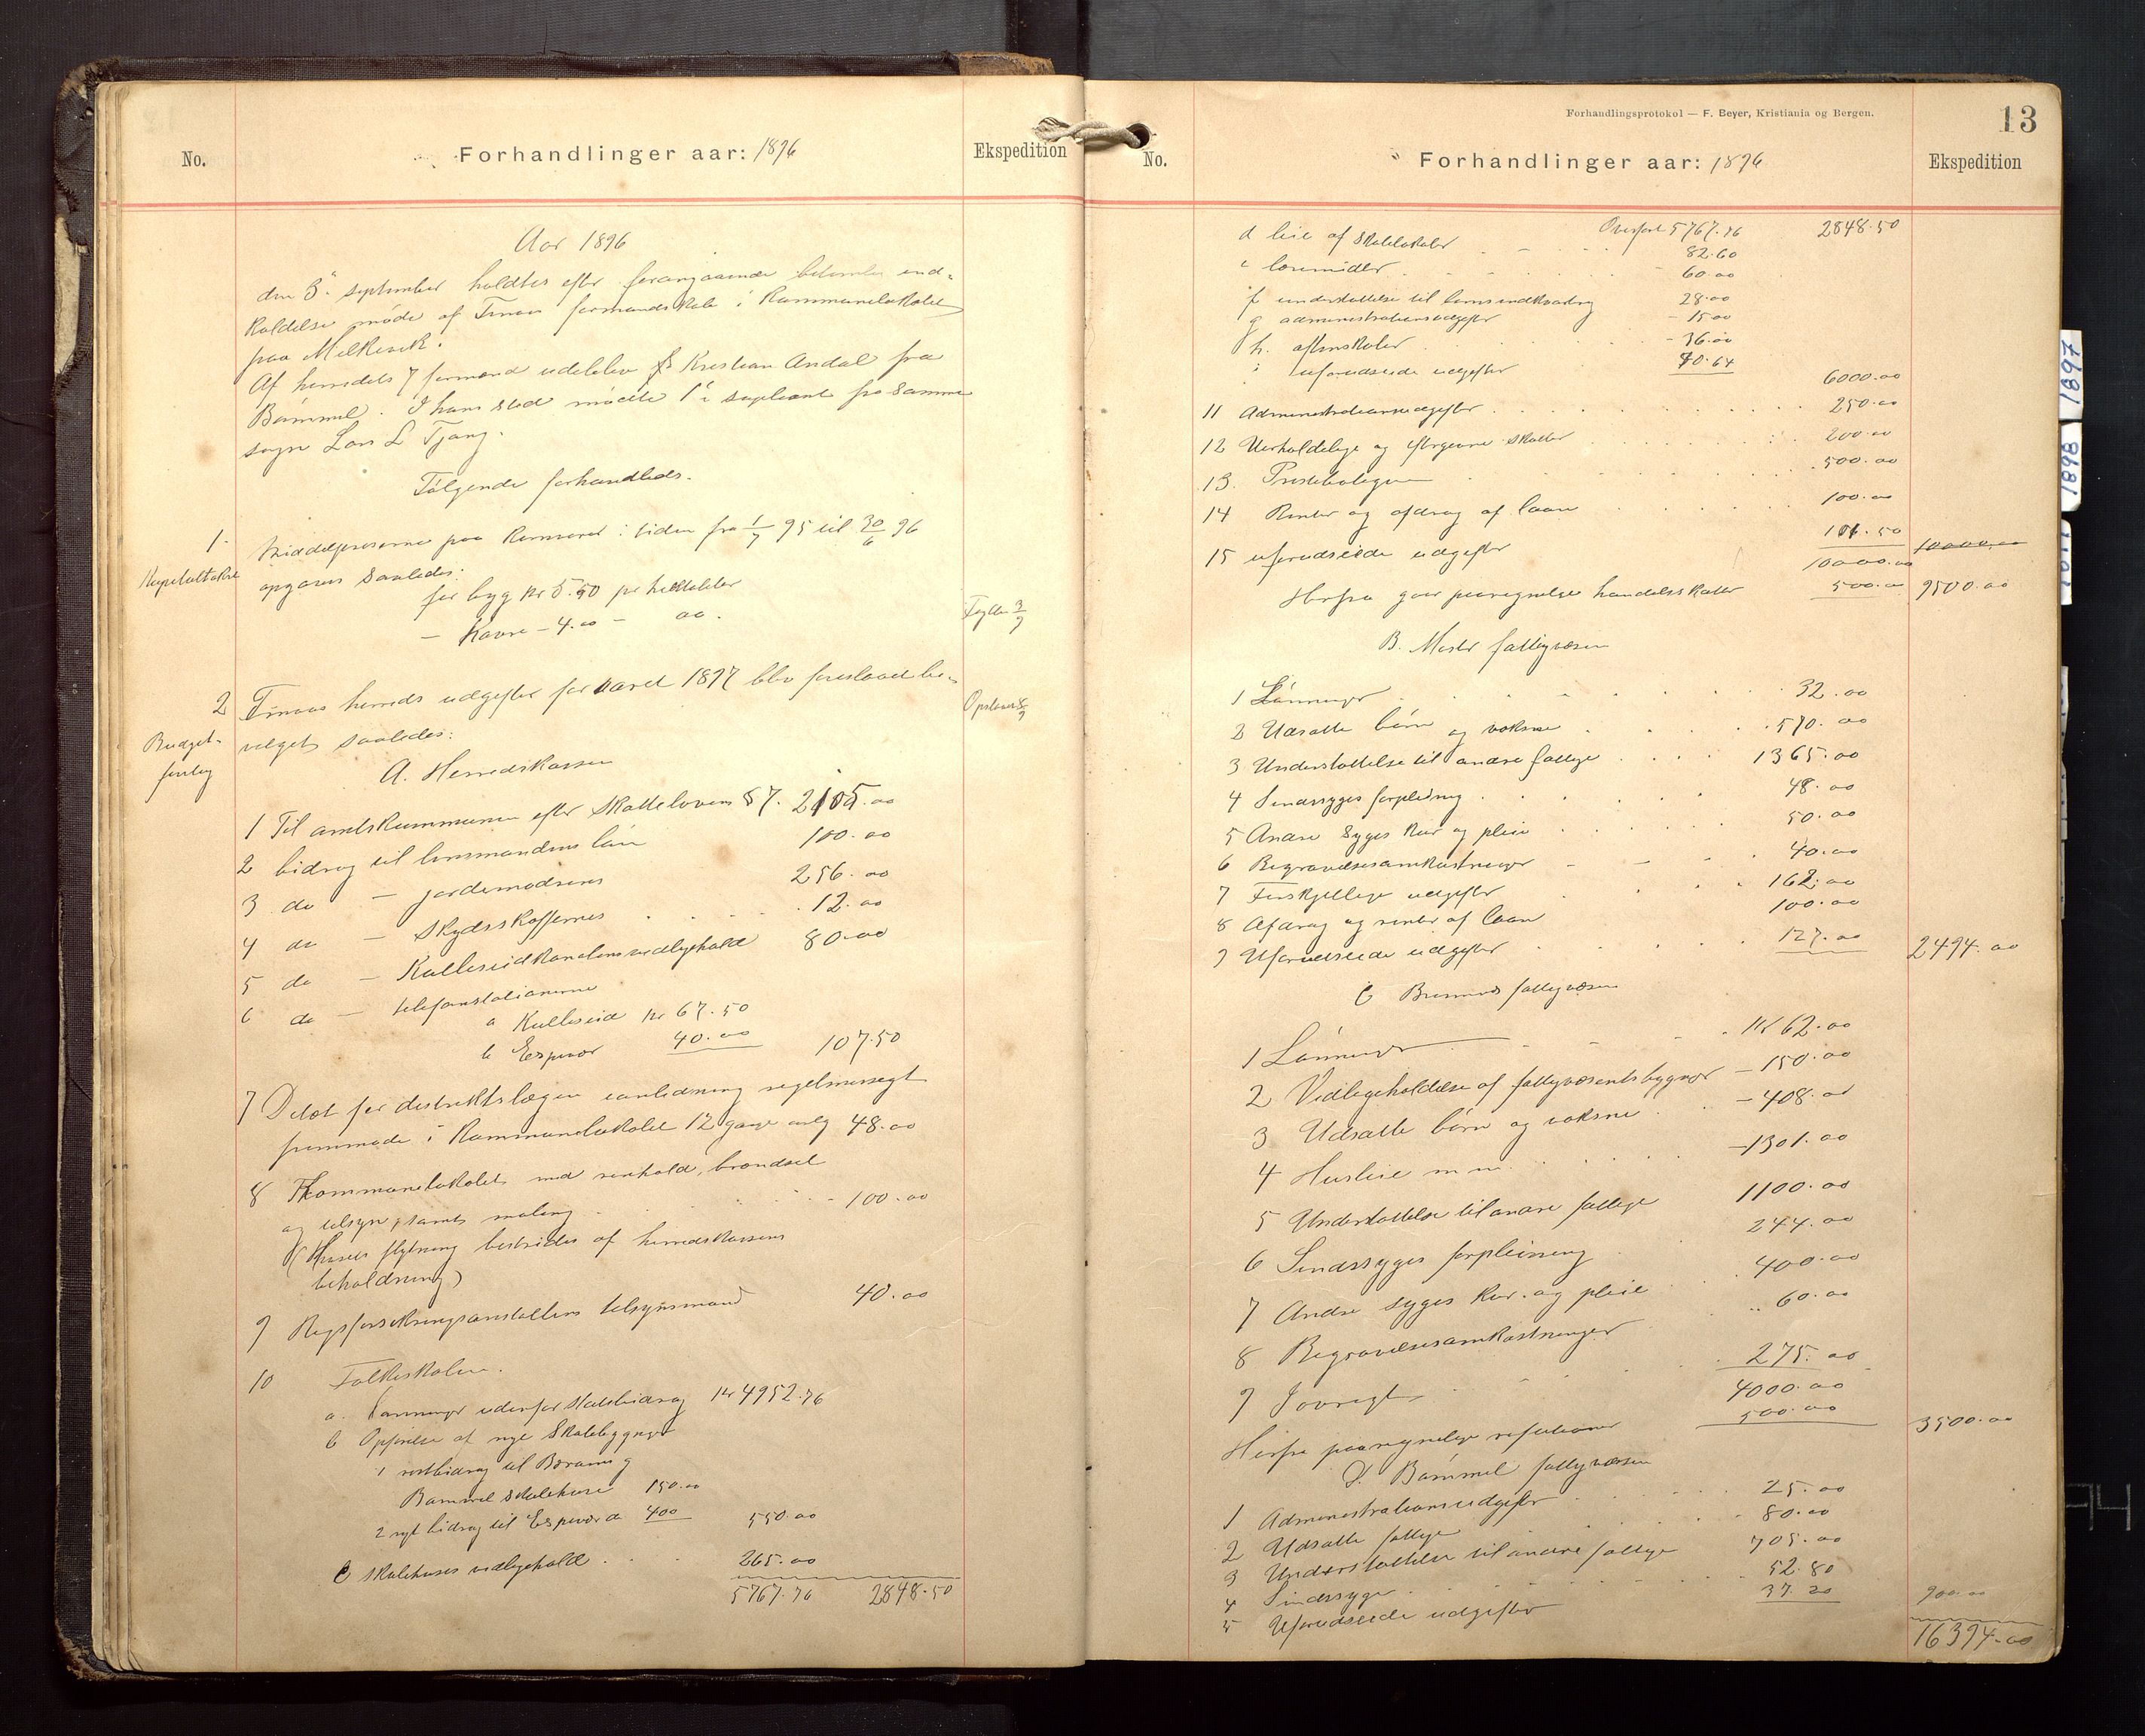 No.
Forhandlinger aar: 1896
Ekspedition
Aar 1896
den 3. september holdtes efter forangaaende bekendt ind-
kaldelse møde af Finaas formandskab i Kommunelokalet
paa Mælkevik.
Af herredets 7 formænd udeblev Kristian Andal fra
Bømmel. I hans sted mødte 1ste supleant fra samme
sogn Lars L Tjong.
Følgende forhandledes.
1.
Kapiteltakst
Middelpriserne paa kornvarer i tiden fra 1/7 95 til 30/6 96
opgaves saaledes:
for byg kr 5.50 pr hektoliter
— Havre - 4.00 - do.
3/9
2
Budget-
forslag
Finaas herreds udgifter for aaret 1897 blev foreslaaet be-
vilget saaledes:
Opslaaet
A. Herredskassen
1 Til amtskommunen efter skatteloven § 7. 2105.00
2 bidrag til lensmandens løn 100.00
3 do — jordemødrenes 256.00
4 do — skydsskafferne 12.00
5 do — Kulleseidkanalens vedligehold 80.00
6 do — telefonstationerne
a Kulleseid kr 67.50
b Espevær 40.00 107.50
7 Do for distriktslægen i anledning regelmæssigt
fremmøde i Kommunelokalet 12 gange aarlig 48.00
8 Kommunelokalet med renhold, brændsel
og tilsyn, samt maling 100.00
(Husets flytning bestrides af herredskassens
beholdning)
9 Rigsforsikringsanstaltens tilsynsmand 40.00
10 Folkeskolen.
a. Lønninger udenfor statsbidrag kr 4952.76
b Opførelse af nye skolebygninger
1 restbidrag til Børøens og
Bømmel skolehuse 150.00
2 nyt bidrag til Espevær do 400 550.00
c skolehuses vedligehold 265.00
5767.76 2848.50
Forhandlingsprotokol — F. Beyer, Kristiania og Bergen.
13
No.
Forhandlinger aar: 1896
Ekspedition
Overført 5767.76 2848.50
d leie af skolelokaler 82.60
e læremidler 60.00
f understøttelse til børns indkvartering 28.00
g administrationsudgifter - 15.00
h. aftenskoler - 36.00
i uforudseede udgifter 10.64
6000.00
11 Administrationsudgifter 250.00
12 Uerholdelige og eftergivne skatter 200.00
13. Presteboligen 500.00
14 Renter og afdrag af laan 100.00
15 uforudseede udgifter 101.50
10000.00 10000.00
Herfra gaar paaregnelige handelsskatter 500.00 9500.00
B. Moster fattigvæsen
1 Lønninger 32.00
2 Udsatte børn og voksne 570.00
3 Understøttelse til andre fattige 1365.00
4 Sindssyges forpleining 48.00
5 Andre syges kur og pleie 50.00
6 Begravelsesomkostninger 40.00
7 Forskjellige udgifter 162.00
8 Afdrag og renter af laan 100.00
9 Uforudseede udgifter 127.00 2494.00
C Bremnes fattigvæsen
1 Lønninger kr 62.00
2 Vedligeholdelse af fattigvæsenets bygninger - 150.00
3 Udsatte børn og voksne - 408.00
4 Husleie m m. - 1301.00
5 Understøttelse til andre fattige 1100.00
6 Sindssyges forpleining 244.00
7 Andre syges kur og pleie 400.00
8 Begravelsesomkostninger 60.00
9 Iøvrigt 275.00
4000.00
Herfra paaregnelige refusioner 500.00 3500.00
D. Bømmel fattigvæsen
1 Administrationsudgifter 25.00
2 Udsatte fattige 80.00
3 Understøttelse til andre fattige 705.00
4 Sindssyge 52.80
5 Uforudseede udgifter 37.20 900.00
16394.00
1897
1898